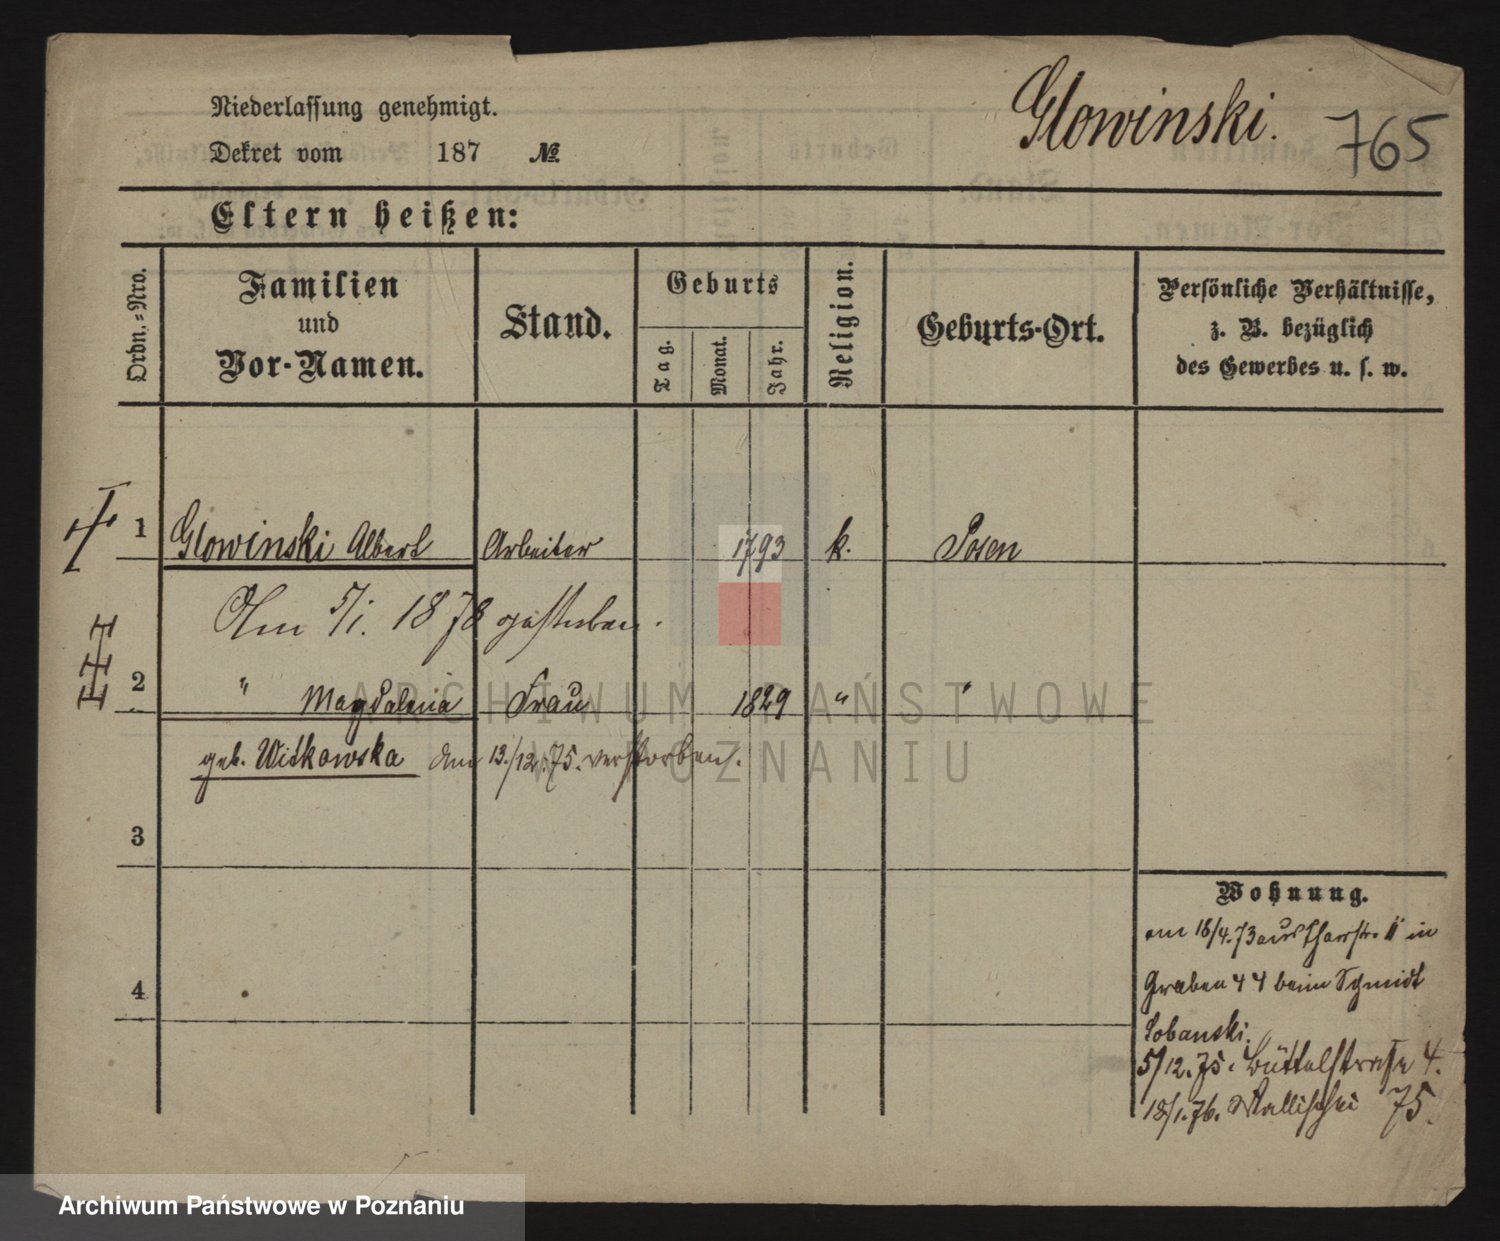 Niederlassung genehmigt.
Dekret vom 187 №
Glowinski. 765
Eltern heißen:
Ordn.-Nro.
Familien
und
Vor-Namen.
Stand.
Geburts
Tag.
Monat.
Jahr.
Religion.
Geburts-Ort.
Persönliche Verhältnisse,
z. B. bezüglich
des Gewerbes u. s. w.
1 Glowinski Albert Arbeiter 1793 k. Posen
Am 5/1. 1878 gestorben.
2 " Magdalena Frau 1829 " "
geb. Witkowska am 13./12.75. verstorben.
3
4
Wohnung.
am 18/4.73 aus Thorstr. 11 in
Graben 44 beim Schmidt
Lobanski.
5/12.75. Büttelstraße 4.
18/1.76. Wallischei 75.
ARCHIWUM PAŃSTWOWE
W POZNANIU
Archiwum Państwowe w Poznaniu